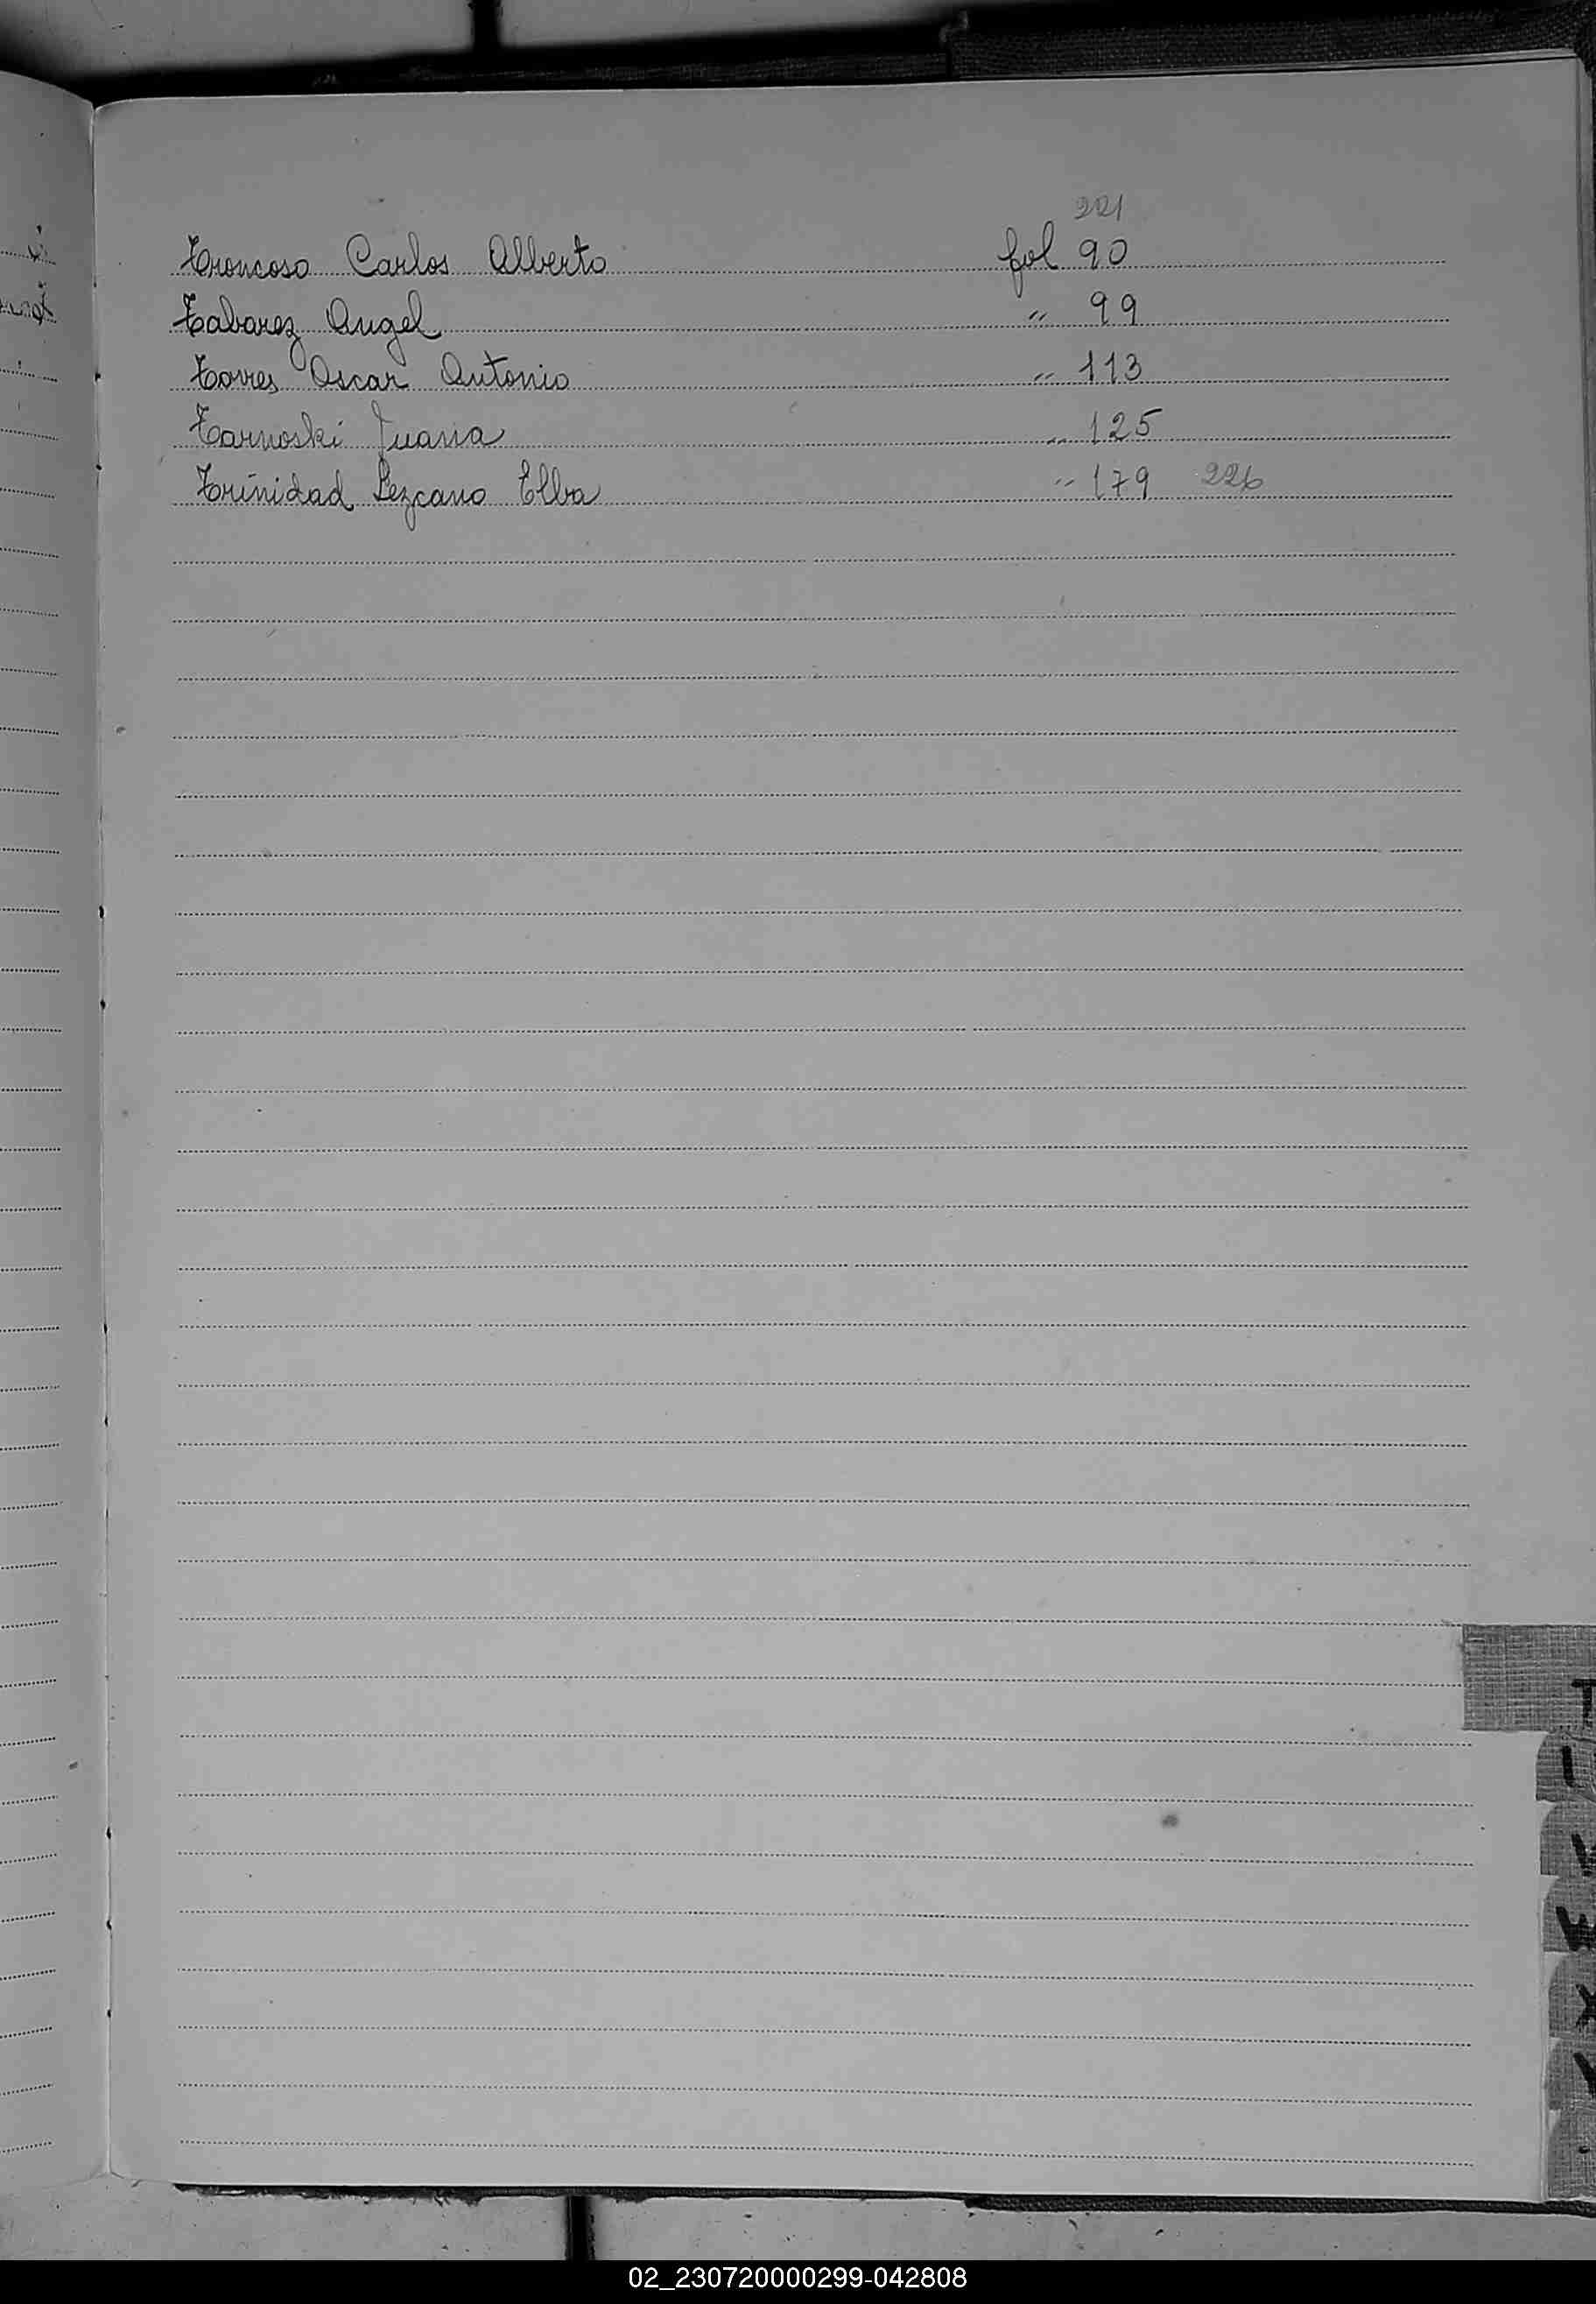 221
Troncoso Carlos Alberto fol 90
Tabarez Angel " 99
Torres Oscar Antonio " 113
Tarnoski Juana " 125
Trinidad Lezcano Elba " 179 226
T
02_230720000299-042808